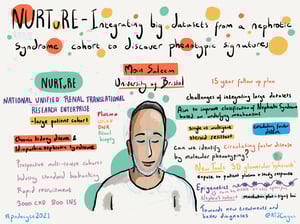 NURTURE - Integrating big datasets from a nephrotic
Syndrome cohort to discover phenotypic signatures
Moin Saleem
University of Bristol
15 year follow up plan
NURTURE
NATIONAL UNIFIED RENAL TRANSLATIONAL
RESEARCH ENTERPRISE
- large patient cohort
Chronic kidney disease &
idiopathic nephrotic syndrome
Plasma
DNA
RNA
Renal
biopsy
Prospective multi-centre cohorts
Industry standard biobanking
Rapid recruitment
3000 CKD 800 INS
challenges of integrating large datasets
Aim to improve classification of Nephrotic Syndrome
based on underlying mechanisms
single vs multigene
steroid resistant
Circulating factor
disease
Can we identify Circulating factor disease
by molecular phenotyping?
New Tools 3D glomerular spheroids
Epigenetics
Towards new treatments and
better diagnoses
#podocyte2021